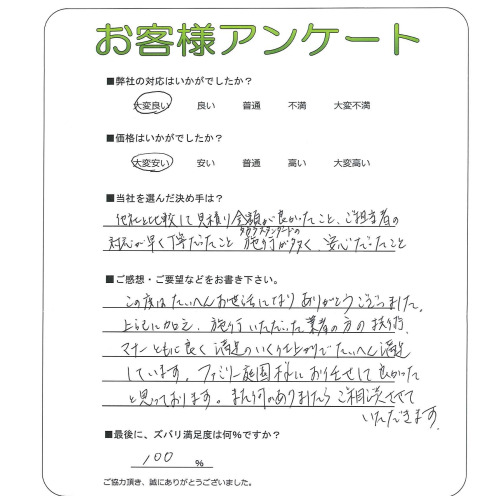 お客様アンケート
■弊社の対応はいかがでしたか？
大変良い 良い 普通 不満 大変不満
■価格はいかがでしたか？
大変安い 安い 普通 高い 大変高い
■当社を選んだ決め手は？
他社と比較して見積り金額が良かったこと、ご担当者の
タカラスタンダードの
対応が早く丁寧だったこと 施行が多く、安心だったこと
■ご感想・ご要望などをお書き下さい。
この度はたいへんお世話になりありがとうございました。
上記に加え、施行いただいた業者の方の技術
マナーともに良く満足のいく仕上がりでたいへん満足
しています。ファミリー庭園様にお任せして良かった
と思っております。また何かありましたらご相談させて
いただきます。
■最後に、ズバリ満足度は何%ですか？
100 %
ご協力頂き、誠にありがとうございました。